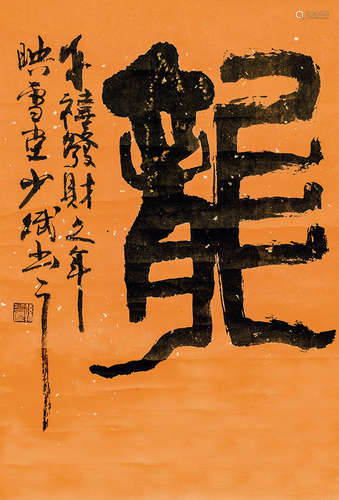 龍
千禧發財之年
映雪堂少斌書